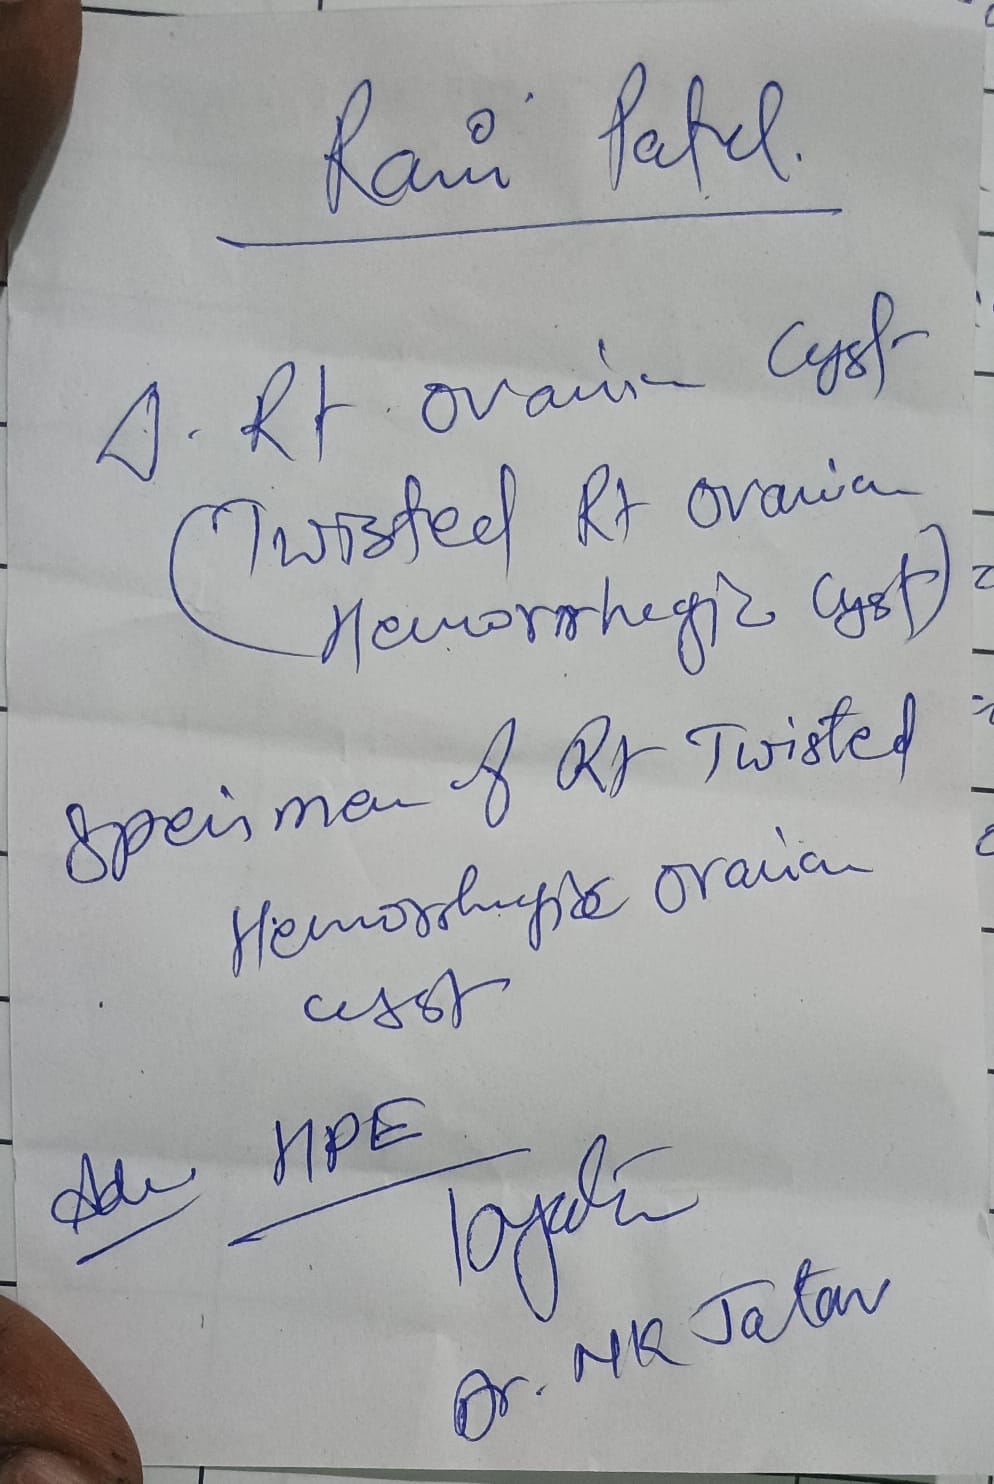 Rani Patel.
Δ. Rt ovarian Cyst
(Twisted Rt ovarian
Hemorrhegic Cyst)
Speismen of Rt Twisted
Hemorrhegic ovarian
cyst
Adv HPE
Dr. NK Jatav